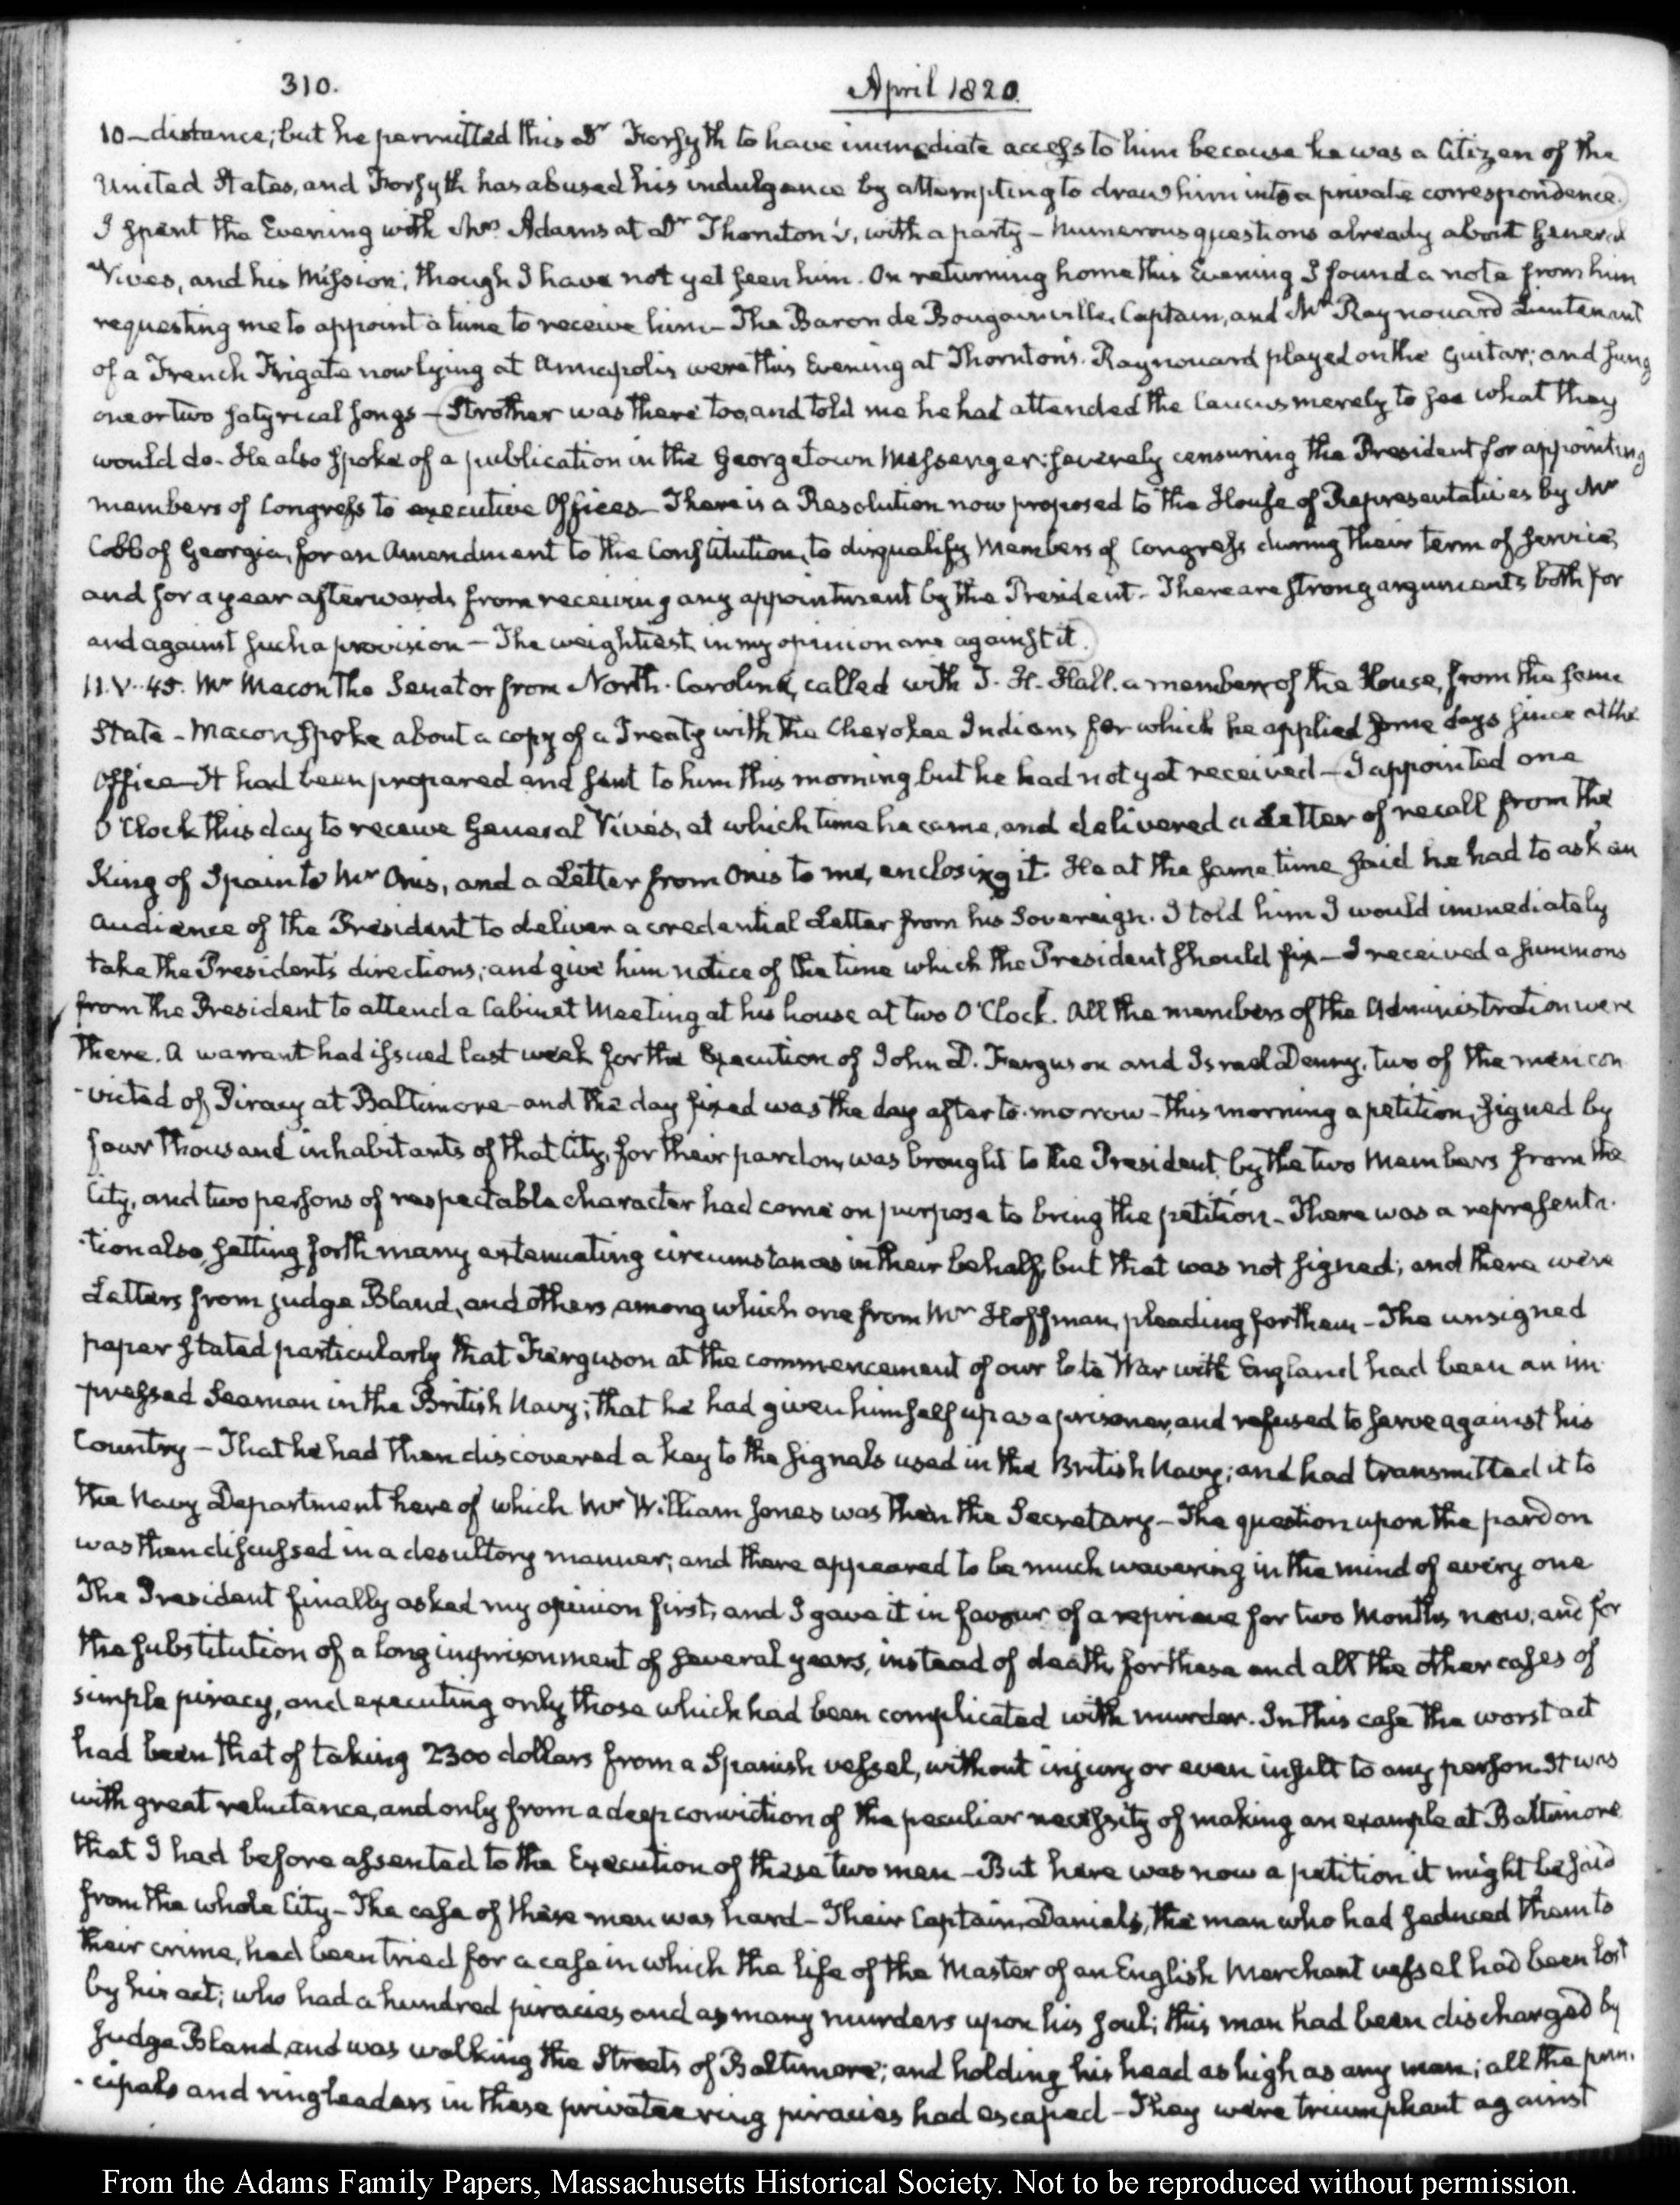 310.
April 1820.
10 — distance; but he permitted this Dr Forsyth to have immediate access to him because he was a Citizen of the
United States, and Forsyth has abused his indulgence by attempting to draw him into a private correspondence.)
I spent the Evening with Mrs Adams at Dr Thornton's, with a party — numerous questions already about General
Vivés, and his Mission; though I have not yet seen him. On returning home this Evening I found a note from him
requesting me to appoint a time to receive him — The Baron de Bougainville, Captain, and Mr Raynouard Lieutenant
of a French Frigate now lying at Annapolis were this Evening at Thornton's. Raynouard played on the Guitar; and sung
one or two satyrical songs — (Strother was there too, and told me he had attended the Caucus merely to see what they
would do. He also spoke of a publication in the Georgetown Messenger: severely censuring the President for appointing
members of Congress to executive Offices — There is a Resolution now proposed to the House of Representatives by Mr
Cobb of Georgia, for an Amendment to the Constitution, to disqualify Members of Congress during their term of service,
and for a year afterwards from receiving any appointment by the President — There are strong arguments both for
and against such a provision — The weightiest in my opinion are against it.)
11. V. 45. Mr Macon the Senator from North-Carolina, called with T. H. Hall, a member of the House, from the same
State — Macon spoke about a copy of a Treaty with the Cherokee Indians for which he applied some days since at the
Office — It had been prepared and sent to him this morning but he had not yet received — (I appointed one
O'Clock this day to receive General Vivés, at which time he came, and delivered a Letter of recall from the
King of Spain to Mr Onis, and a Letter from Onis to me, enclosing it. He at the same time said he had to ask an
audience of the President to deliver a credential Letter from his Sovereign. I told him I would immediately
take the President's directions; and give him notice of the time which the President should fix — I received a summons
from the President to attend a Cabinet Meeting at his house at two O'Clock. All the members of the Administration were
there. A warrant had issued last week for the Execution of John D. Ferguson and Israel Denny, two of the men con
-victed of Piracy at Baltimore — and the day fixed was the day after to-morrow — this morning a petition, signed by
four thousand inhabitants of that City, for their pardon, was brought to the President by the two Members from the
City, and two persons of respectable character had come on purpose to bring the petition — There was a representa-
-tion also, setting forth many extenuating circumstances in their behalf, but that was not signed; and there were
Letters from judge Bland, and others, among which one from Mr Hoffman, pleading for them — The unsigned
paper stated particularly that Ferguson at the commencement of our late War with England had been an im-
pressed Seaman in the British Navy; that he had given himself up as a prisoner, and refused to serve against his
Country — That he had then discovered a key to the signals used in the British Navy; and had transmitted it to
the Navy Department here of which Mr William Jones was then the Secretary — The question upon the pardon
was then discussed in a desultory manner; and there appeared to be much wavering in the mind of every one
The President finally asked my opinion first, and I gave it in favour of a reprieve for two Months now, and for
the substitution of a long imprisonment of several years, instead of death, for these and all the other cases of
simple piracy, and executing only those which had been complicated with murder. In this case the worst act
had been that of taking 2300 dollars from a Spanish vessel, without injury or even insult to any person. It was
with great reluctance, and only from a deep conviction of the peculiar necessity of making an example at Baltimore
that I had before assented to the Execution of these two men — But here was now a petition it might be said
from the whole City — The case of these men was hard — Their Captain, Daniels, the man who had seduced them to
their crime, had been tried for a case in which the life of the Master of an English Merchant vessel had been lost
by his act; who had a hundred piracies and as many murders upon his soul; this man had been discharged by
Judge Bland, and was walking the Streets of Baltimore; and holding his head as high as any man; all the prin-
-cipals and ringleaders in these privateering piracies had escaped — They were triumphant against
From the Adams Family Papers, Massachusetts Historical Society. Not to be reproduced without permission.